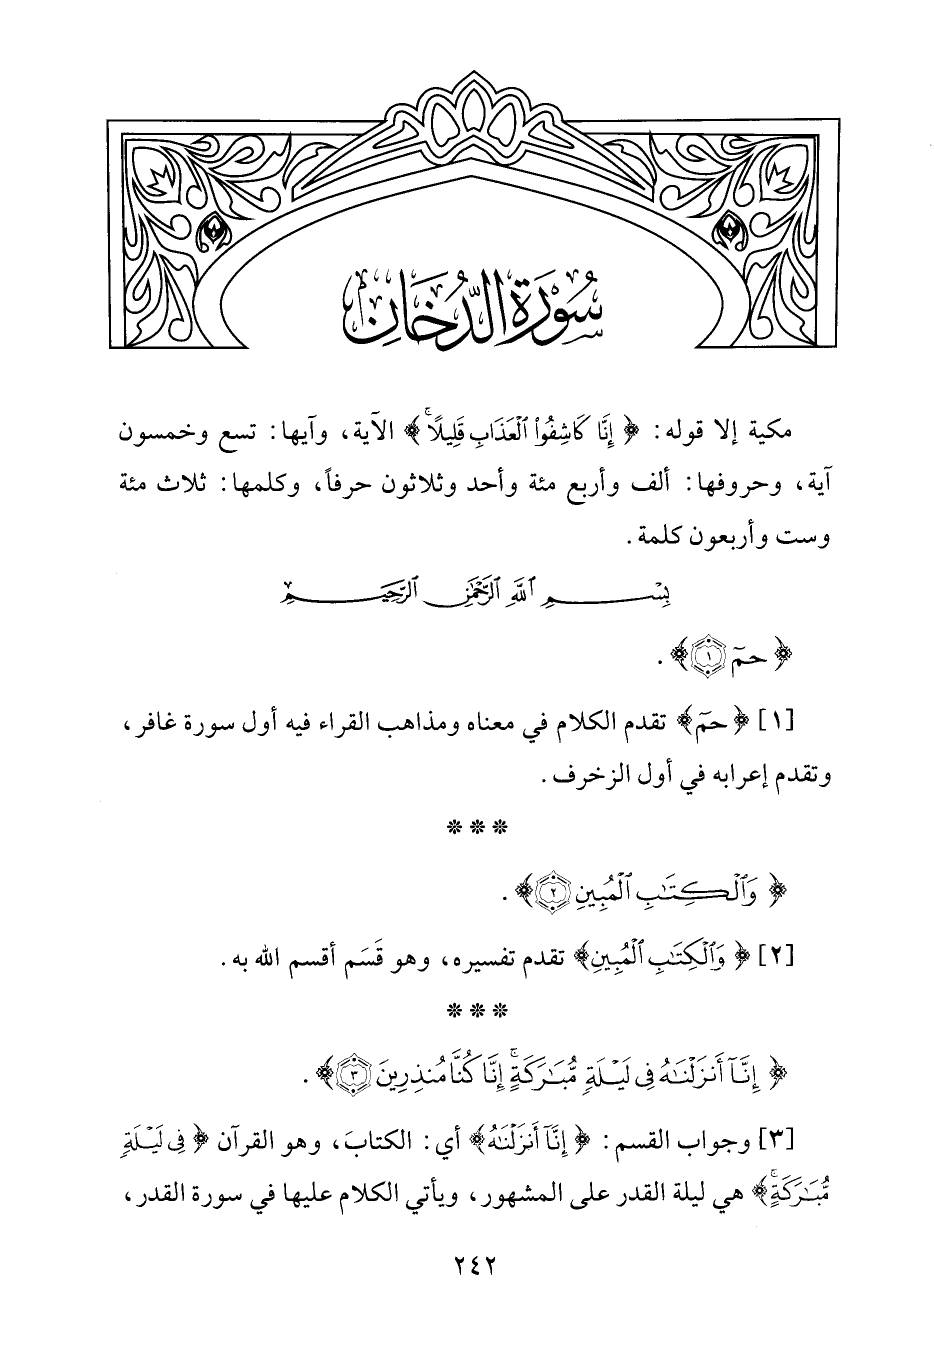 سُورَةُ الدُّخَانِ
مكية إلا قوله: ﴿إِنَّا كَاشِفُواْ ٱلْعَذَابِ قَلِيلًاۚ﴾ الآية، وآيها: تسع وخمسون
آية، وحروفها: ألف وأربع مئة وأحد وثلاثون حرفاً، وكلمها: ثلاث مئة
وست وأربعون كلمة.
بِسْمِ ٱللَّهِ ٱلرَّحْمَٰنِ ٱلرَّحِيمِ
﴿حمٓ ۝١﴾.
[١] ﴿حمٓ﴾ تقدم الكلام في معناه ومذاهب القراء فيه أول سورة غافر،
وتقدم إعرابه في أول الزخرف.
* * *
﴿وَٱلْكِتَٰبِ ٱلْمُبِينِ ۝٢﴾.
[٢] ﴿وَٱلْكِتَٰبِ ٱلْمُبِينِ﴾ تقدم تفسيره، وهو قَسَم أقسم الله به.
* * *
﴿إِنَّآ أَنزَلْنَٰهُ فِى لَيْلَةٍ مُّبَٰرَكَةٍۚ إِنَّا كُنَّا مُنذِرِينَ ۝٣﴾.
[٣] وجواب القسم: ﴿إِنَّآ أَنزَلْنَٰهُ﴾ أي: الكتابَ، وهو القرآن ﴿فِى لَيْلَةٍ
مُّبَٰرَكَةٍۚ﴾ هي ليلة القدر على المشهور، ويأتي الكلام عليها في سورة القدر،
٢٤٢